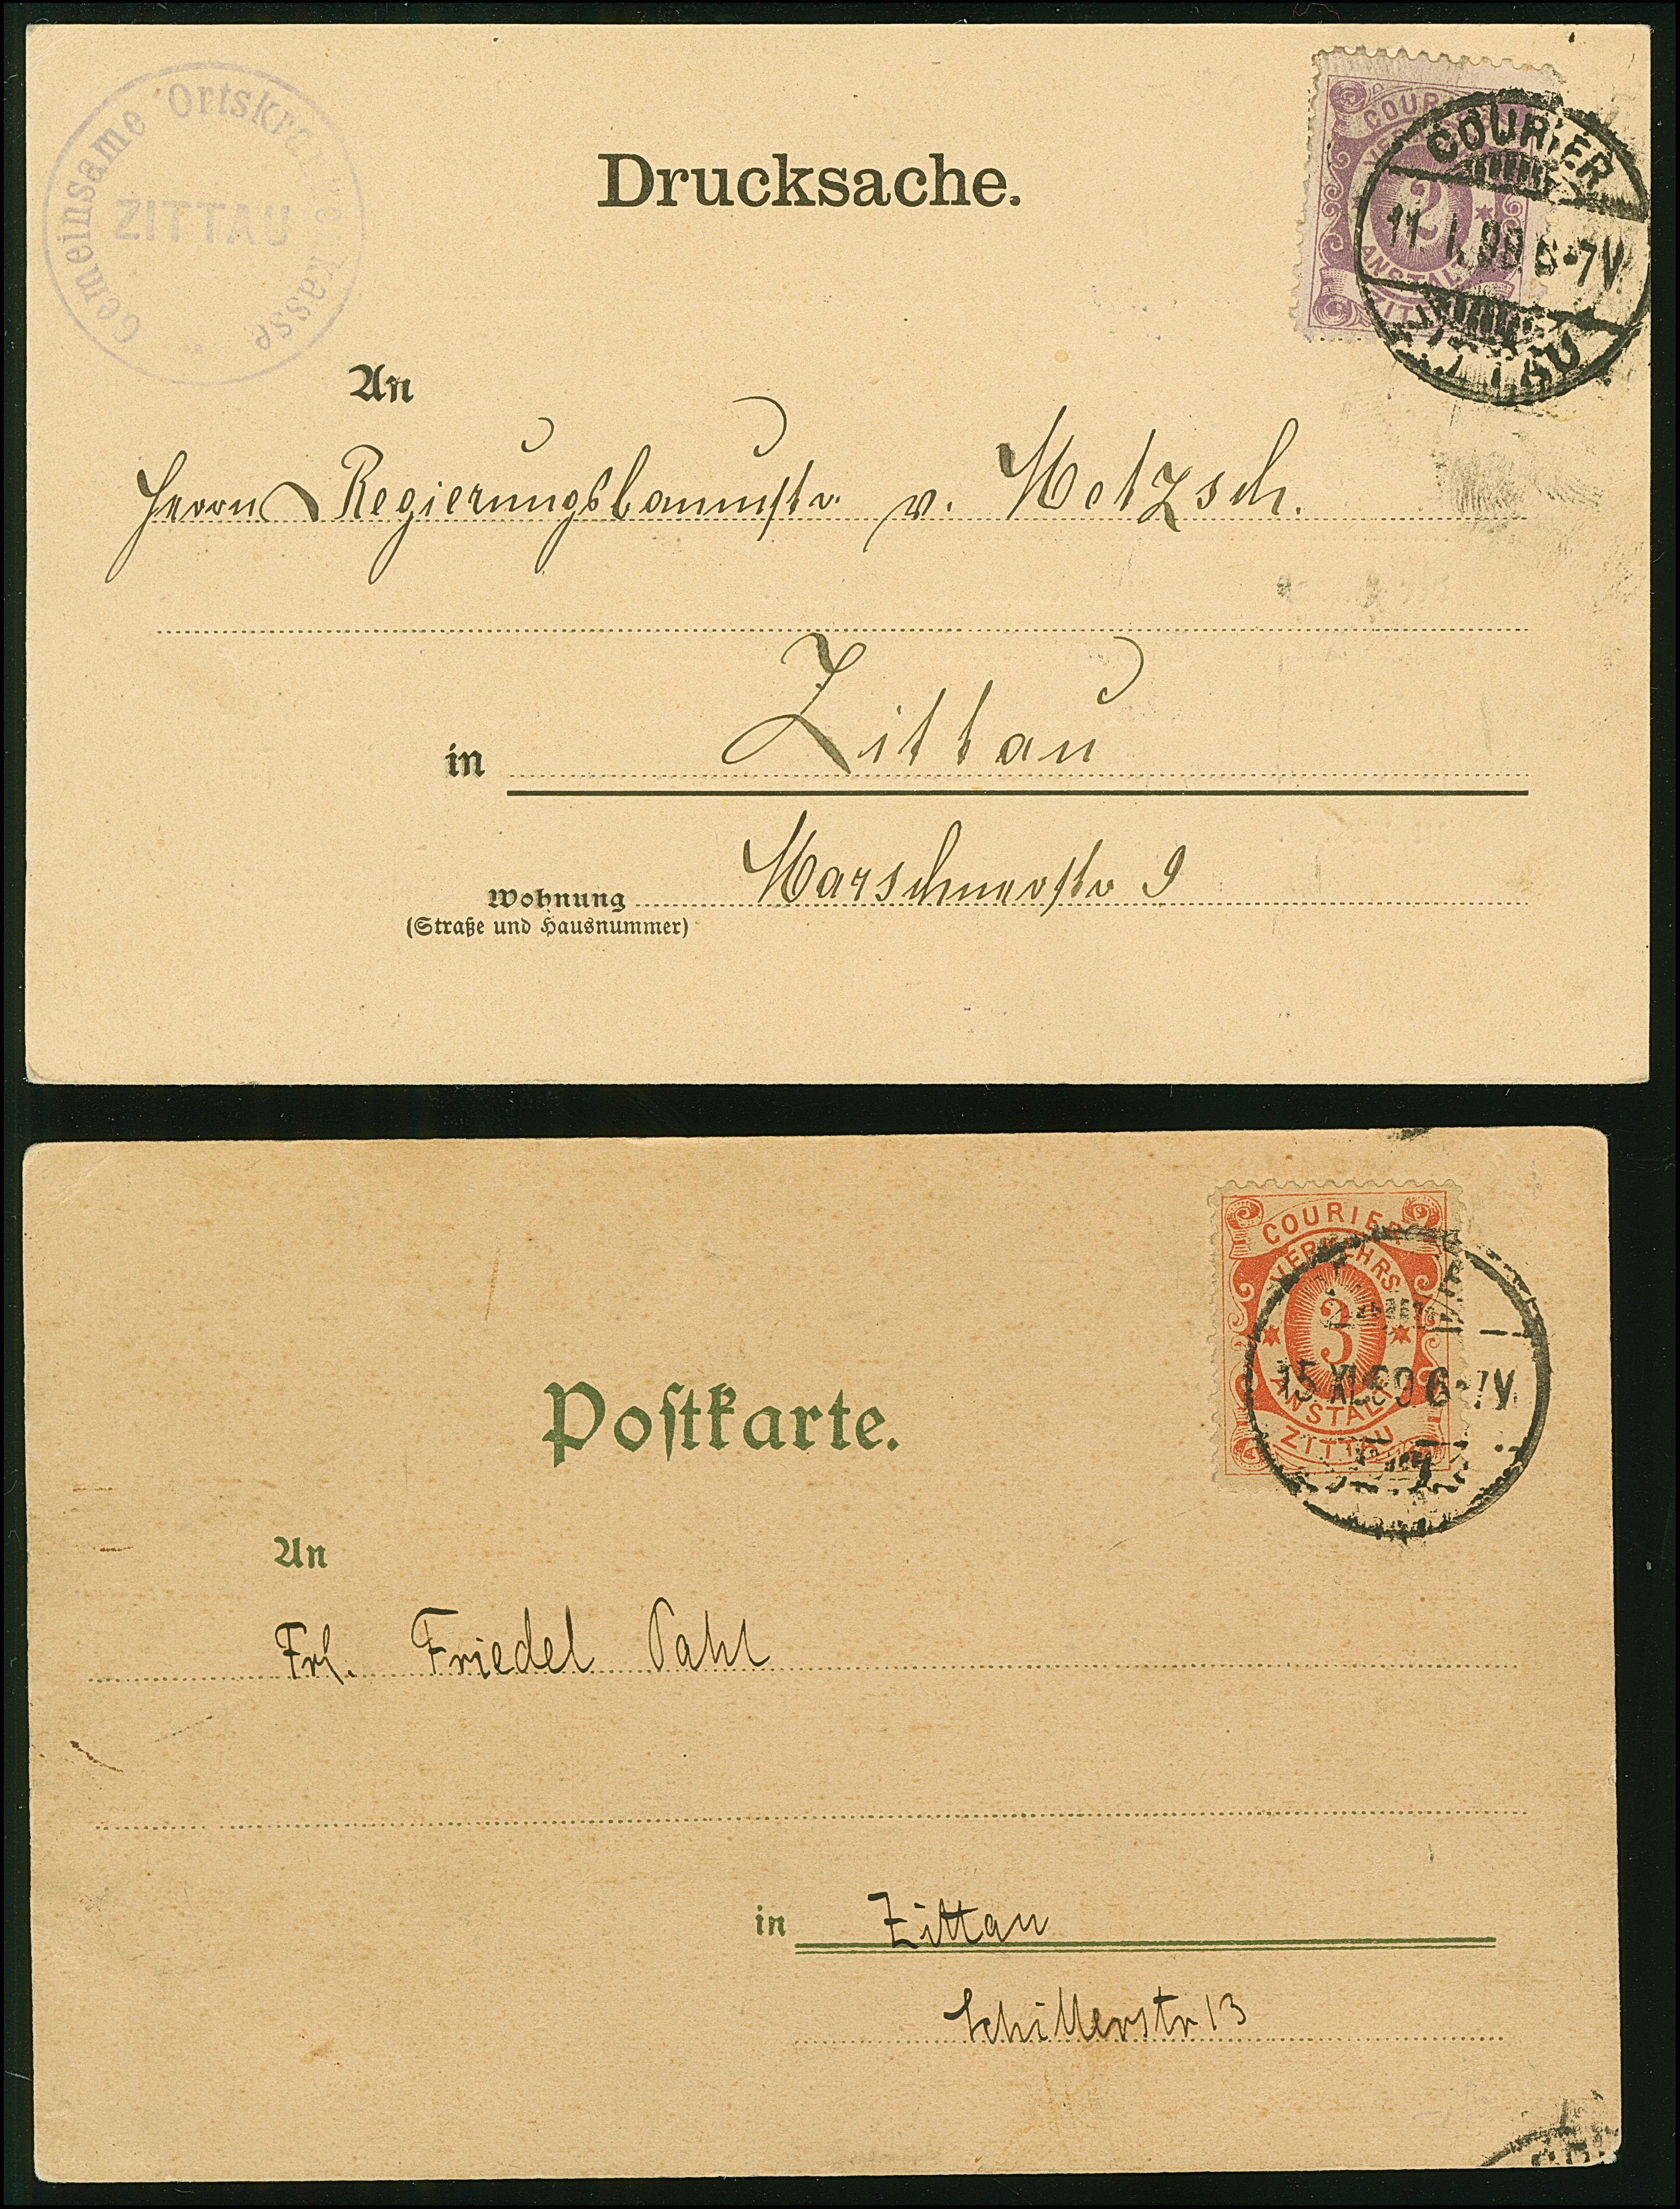 Gemeinsame Ortskrankenkasse
ZITTAU
Drucksache.
COURIER
2
ANSTALT
COURIER
11. I. 00 6-7V.
ZITTAU
An
Herrn Regierungsbaumstr. v. Metzsch.
in Zittau
Wohnung Marschnerstr 9
(Straße und Hausnummer)
COURIER
VERKEHRS
3
ANSTALT
ZITTAU
15 XI 6-7V.
Postkarte.
An
Frl. Friedel Pahl
in Zittau
Schillerstr 13